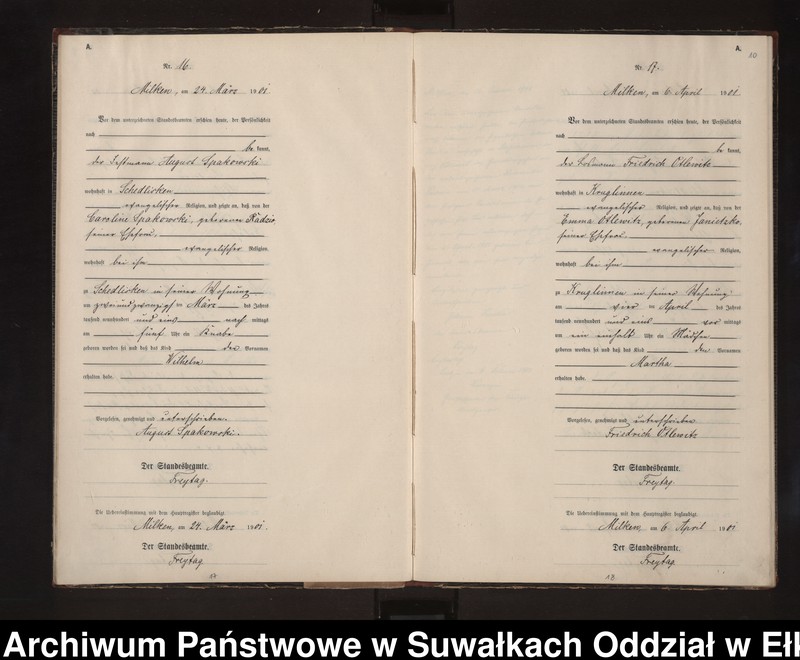 A.
Nr. 16.
Milken, am 24. März 1901
Vor dem unterzeichneten Standesbeamten erschien heute, der Persönlichkeit
nach
be kannt,
der Instmann August Spakowski
wohnhaft in Schedlisken
evangelischer Religion, und zeigte an, daß von der
Caroline Spakowski, geborenen Rudzio
seiner Ehefrau,
evangelischer Religion,
wohnhaft bei ihm
zu Schedlisken in seiner Wohnung
am zweiundzwanzigsten März des Jahres
tausend neunhundert und eins nach mittags
um fünf Uhr ein Knabe
geboren worden sei und daß das Kind den Vornamen
Wilhelm
erhalten habe.
Vorgelesen, genehmigt und unterschrieben.
August Spakowski.
Der Standesbeamte.
Freytag.
Die Uebereinstimmung mit dem Hauptregister beglaubigt.
Milken, am 24. März 1901.
Der Standesbeamte.
Freytag.
A.
10
Nr. 17.
Milken, am 6. April 1901
Vor dem unterzeichneten Standesbeamten erschien heute, der Persönlichkeit
nach
be kannt,
der Losmann Friedrich Otlewitz
wohnhaft in Kruglinnen
evangelischer Religion, und zeigte an, daß von der
Emma Otlewitz, geborenen Janietzko,
seiner Ehefrau,
evangelischer Religion,
wohnhaft bei ihm
zu Kruglinnen in seiner Wohnung
am vier ten April des Jahres
tausend neunhundert und eins vor mittags
um ein einhalb Uhr ein Mädchen
geboren worden sei und daß das Kind den Vornamen
Martha
erhalten habe.
Vorgelesen, genehmigt und unterschrieben
Friedrich Otlewitz
Der Standesbeamte.
Freytag.
Die Uebereinstimmung mit dem Hauptregister beglaubigt.
Milken, am 6. April 1901
Der Standesbeamte.
Freytag.
Archiwum Państwowe w Suwałkach Oddział w Eł